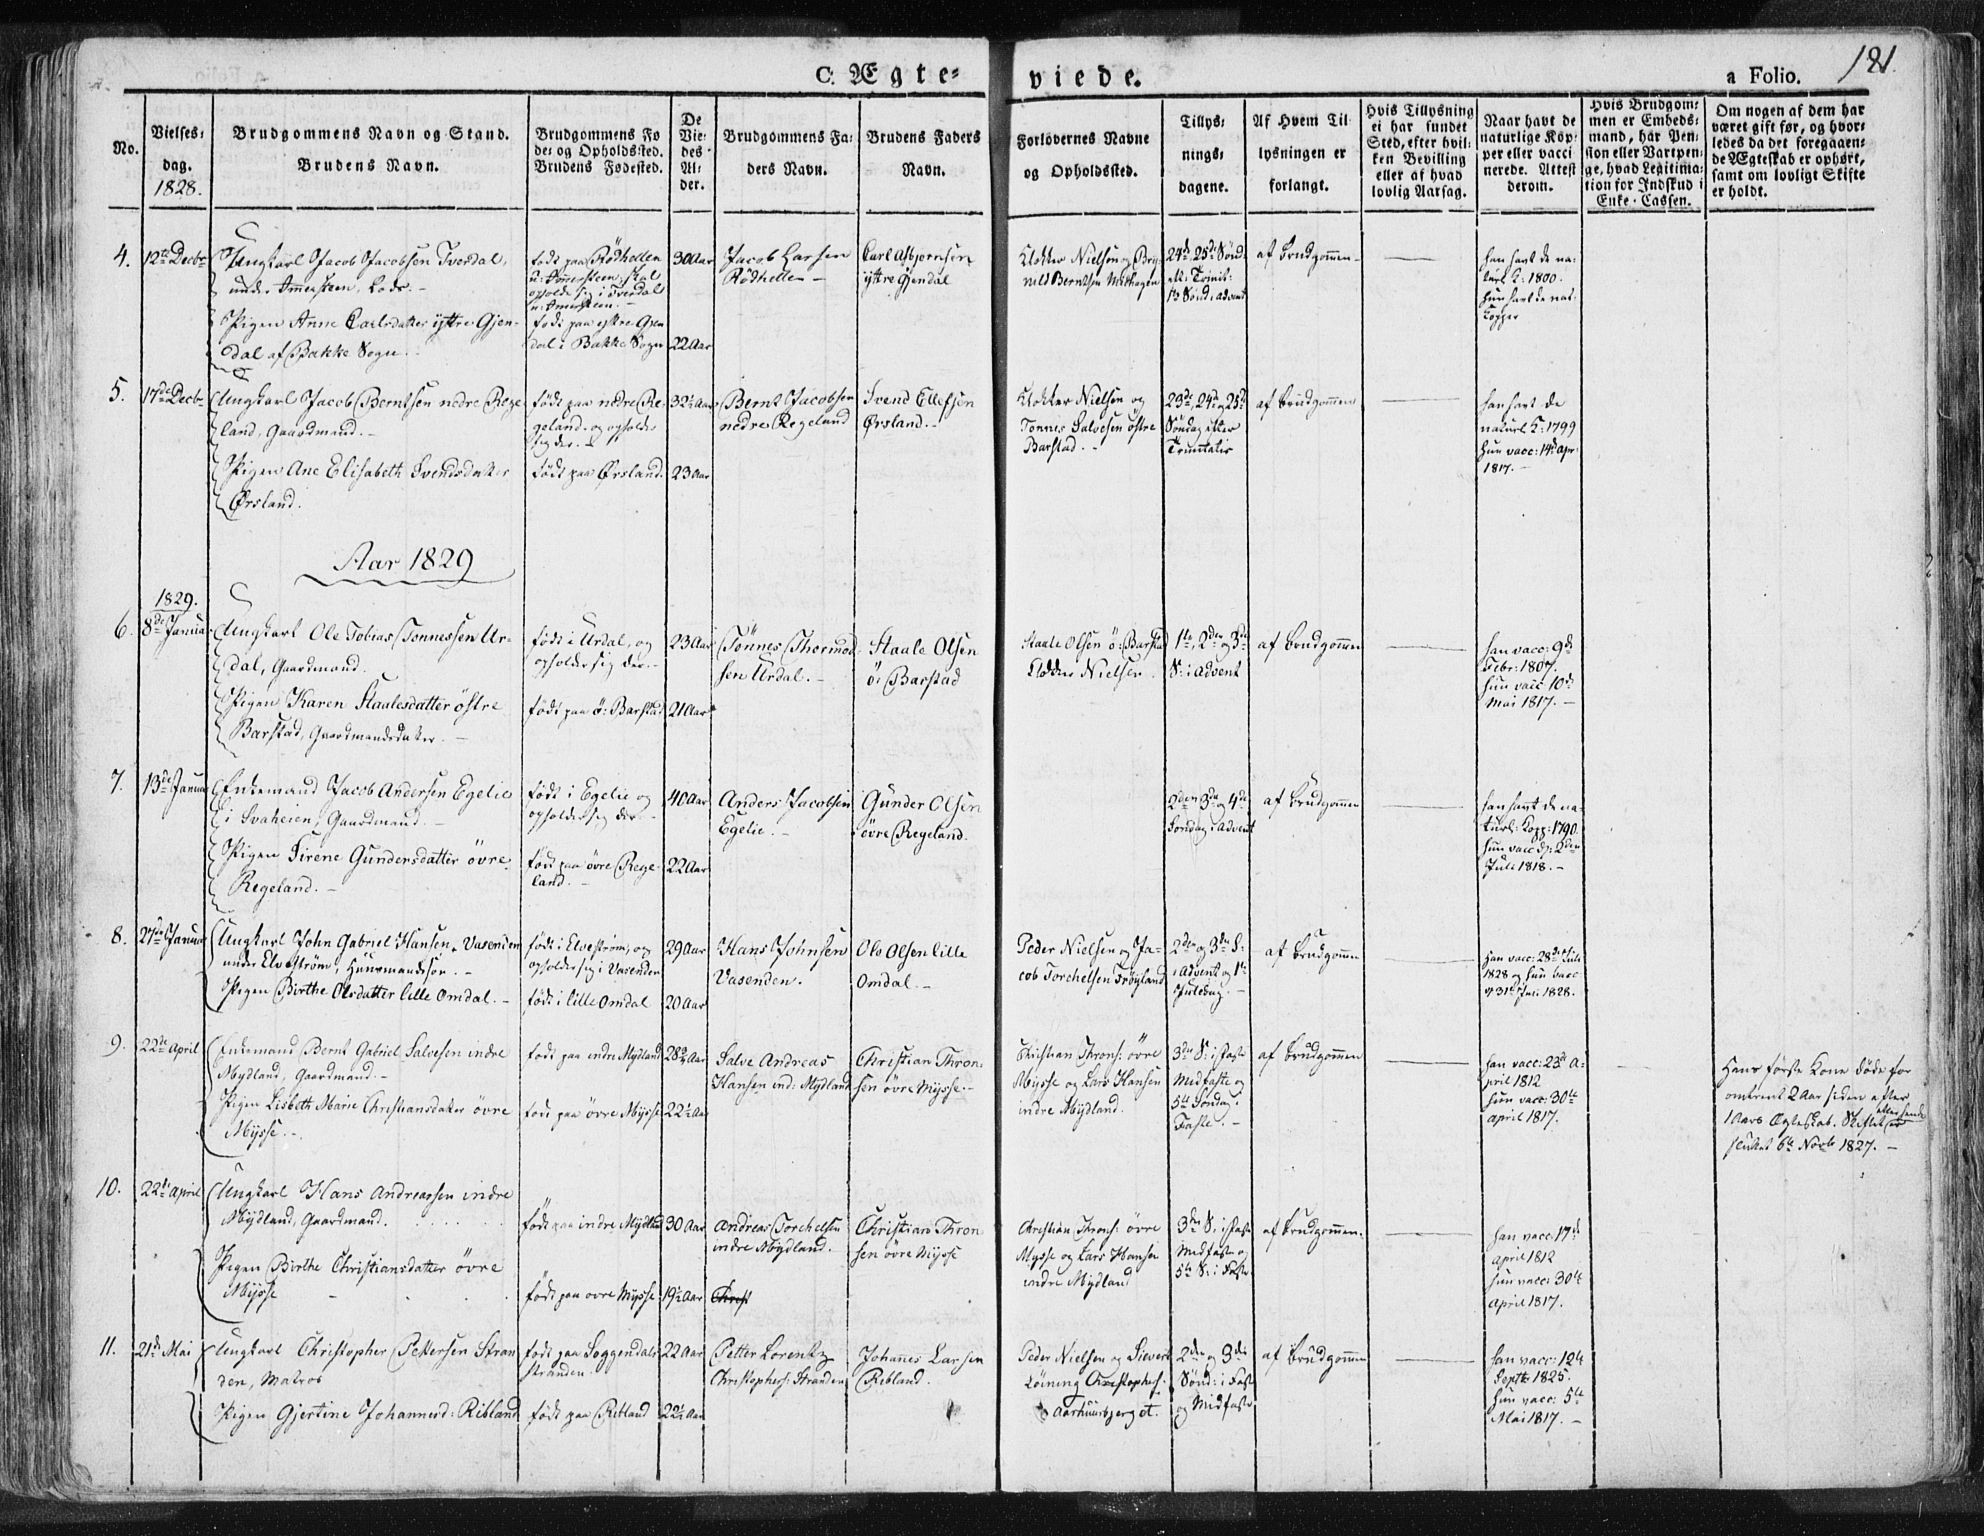 C. Ægte-
viede.
a Folio.
181.
No.
Vielses-
dag.
1828.
Brudgommens Navn og Stand.
Brudens Navn.
Brudgommens Fø
de- og Opholdssted.
Brudens Fødested.
De
Vie-
des
Al-
der.
Brudgommens Fa-
ders Navn.
Brudens Faders
Navn.
Forlovernes Navne
og Opholdssted.
Tillys-
nings-
dagene.
Af Hvem Til-
lysningen er
forlangt.
Hvis Tillysning
ei har fundet
Sted, efter hvil-
ken Bevilling
eller af hvad
lovlig Aarsag.
Naar havt de
naturlige Kop-
per eller vacci
nerede. Attest
derom.
Hvis Brudgom-
men er Embeds-
mand, har Pen-
sion eller Vartpen-
ge, hvad Legitima-
tion for Indskud i
Enke-Cassen.
Om nogen af dem har
været gift før, og hvor-
ledes da det foregaaen-
de Ægteskab er ophørt,
samt om lovligt Skifte
er holdt.
4.
12te Decbr
Ungkarl Jacob Jacobsen Tverdal,
under Ammersteen, Lods. -
Pigen Anne Carlsdatter yttre Gjen-
dal af Bakke Sogn.
født paa Rødhellen
u: Ammersteen, skal
opholde sig i Tverdal
u: Amersteen. -
født paa yttre Gjen
dal i Bakke Sogn
30 Aar
22 Aar
Jacob Larsen
Rødhelle -
Carl Asbjørnsen
yttre Gjendal
Klokker Nielsen og
Berntsen Midhagen
24de, 25de Sønd
eft: Trinit:
1te Sønd: i Advent
af Brudgommen -
han havt de na-
turl: K: 1800.
hun havt de nat.
Kopper
5.
17de Decbr
Ungkarl Jacob Berntsen nedre Rege-
land, Gaardmand. -
Pigen Ane Elisabeth Svendsdatter
Ørsland.
født paa nedre Re-
geland, og opholder
sig der. -
født paa Ørsland.
32½ Aar
23 Aar
Bernt Jacobsen
nedre Regeland
Svend Ellefsen
Ørsland. -
Klokker Nielsen og
Tonnes Salvesen østre
Barstad. -
23de, 24de og 25de
Søndag efter
Trinitatis
af Brudgommen
han havt de
naturl K: 1799
hun vacc: 14de Apr:
1817. -
Aar 1829
1829.
6.
8de Januar
Ungkarl Ole Tobias Tonnessen Ur-
dal, Gaardmand.
Pigen Karen Staalesdatter østre
Barstad, Gaardmandsdatter. -
født i Urdal, og
opholder sig der. -
født paa ø: Barstad
23 Aar
21 Aar
Tönnes Thormod
sen Urdal. -
Staale Olsen
ø: Barstad
Staale Olsen ø: Barstad
Klokker Nielsen.
1te, 2den og 3de
S: i Advent
af Brudgommen
han vacc: 9de
Febr: 1807.
hun vacc 10de
Mai 1817. -
7.
13de Januar
Enkemand Jacob Andersen Egelie
i Svaheien, Gaardmand. -
Pigen Sirene Gundersdatter övre
Regeland. -
født i Egelie og
opholder sig der -
født paa øvre Rege-
land. -
40 Aar
22 Aar
Anders Jacobsen
Egelie. -
Gunder Olsen
øvre Regeland.
2den 3de og 4de
Søndag i Advent
af Brudgommen
han havt de na-
turl: Kopp: 1790
hun vacc d: 2den
Juli 1818. -
8.
27de Januar
Ungkarl John Gabriel Hansen Vasenden
under Elvestrøm, Huusmandssøn. -
Pigen Birthe Olsdatter lille Omdal. -
født i Elvestrøm, og
opholder sig i Vasenden
født i lille Omdal
29 Aar
20 Aar
Hans Johnsen
Vasenden.
Ole Olsen lille
Omdal. -
Peder Nielsen og Ja-
cob Torchelsen Frøyland
2den og 3de S:
i Advent og 1te
Juledag. -
af Brudgommen
han vacc: 28de Juli
1828 og hun vacc
d 31te Juli 1828.
9.
22de April
Enkemand Bernt Gabriel Salvesen indre
Mydland, Gaardmand. -
Pigen Lisbeth Marie Christiansdatter övre
Mysse. -
født paa indre Mydland
født paa øvre Mysse
28 Aar
22½ Aar
Salve Andreas
Hansen ind: Mydland
Christian Thron-
sen øvre Mysse. -
Christian Throns: øvre
Mysse og Lars Hansen
indre Mydland.
3de S: i Faste
Midfaste og
5te Søndag i
Faste. -
af Brudgommen
han vacc: 23de A-
pril 1812
hun vacc: 30te
april 1817.
Hans første Kone døde for
omtrent 2 Aar siden efter
1 Aars Ægteskab. Skiftet efter hende
sluttet 6te Novbr 1827. -
10.
22de April
Ungkarl Hans Andreassen indre
Mydland, Gaardmand.
Pigen Birthe Christiansdatter övre
Mysse
født paa indre Mydland
født paa øvre Mysse
30 Aar
19½ Aar
Andreas Torchelsen
indre Mydland.
Christ
Christian Thron
sen øvre Mysse
Christian Throns: øvre
Mysse og Lars Hansen
indre Mydland
3de S: i Faste
Midfaste og
5te S: i Faste
af Brudgommen.
han vacc: 17de
april 1812
hun vacc: 30te
april 1817.
11.
21de Mai
Ungkarl Christopher Pettersen Stran
den, Matros
Pigen Gjertine Johannesd: Ribland
født paa Soggendals
stranden.
født paa Ribland
22 Aar
22½ Aar
Petter Lorentz
Christophers: Stranden
Johannes Larsen
Ribland.
Peder Nielsen og Sievert
Christophers:
Aarhuusbjerget.
2den og 3de
Sønd: i Faste
og Midfaste
af Brudgommen
han vacc: 12te
Septbr 1825.
hun vacc: 5te
Mai 1817. -